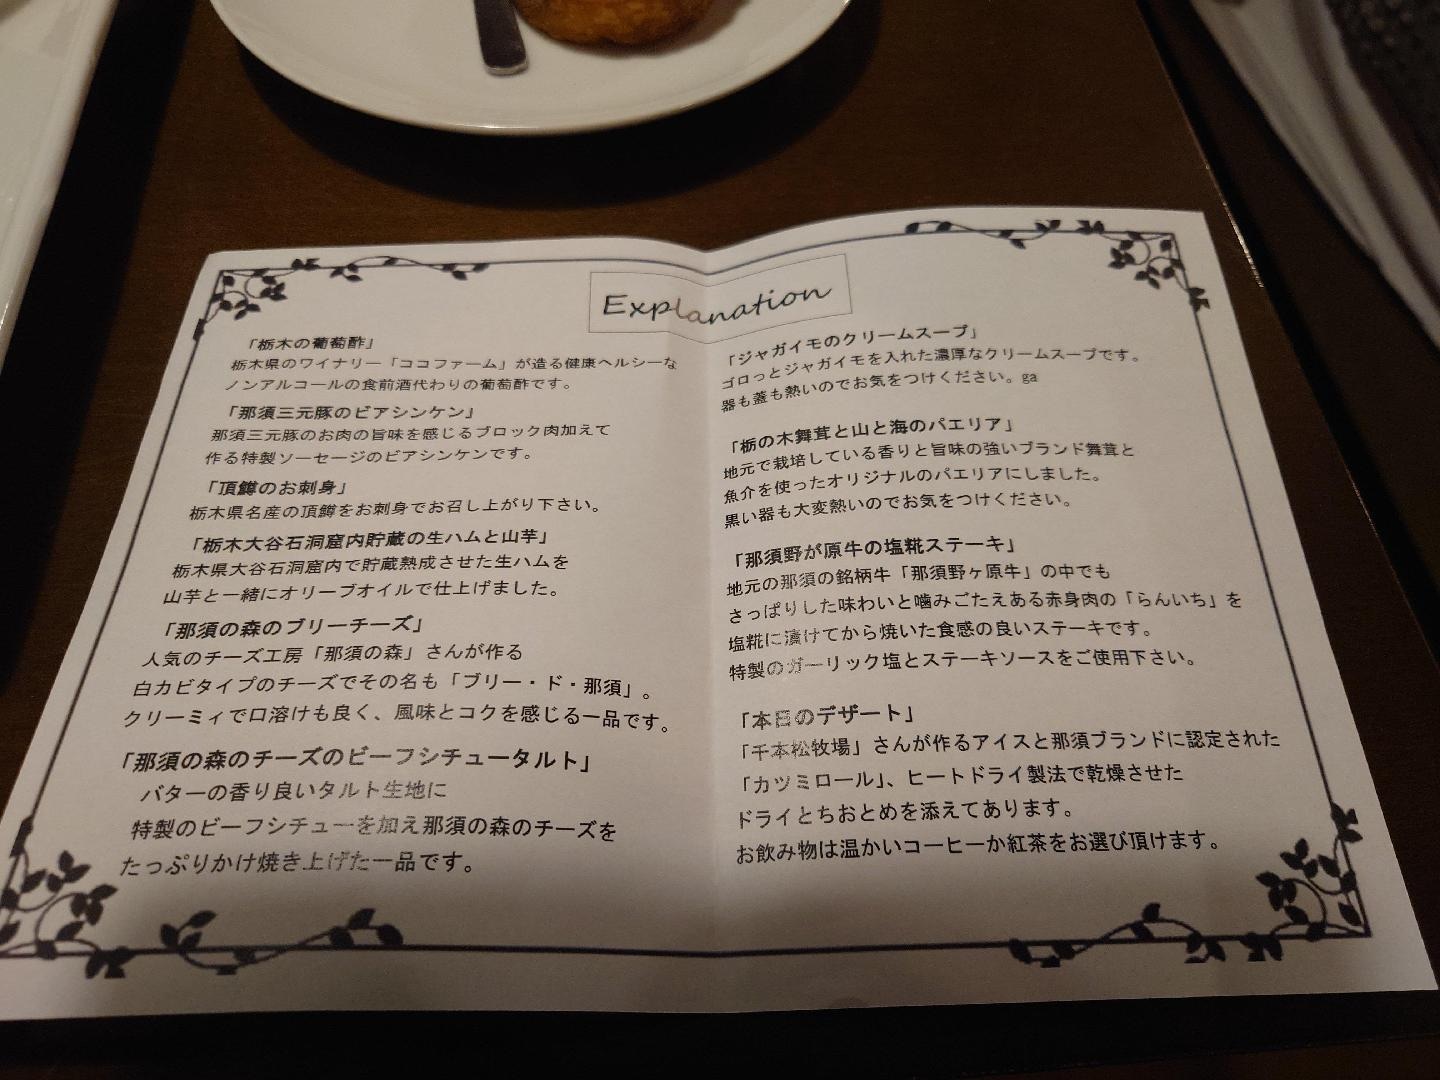 Explanation
「栃木の葡萄酢」
栃木県のワイナリー「ココファーム」が造る健康ヘルシーな
ノンアルコールの食前酒代わりの葡萄酢です。
「那須三元豚のビアシンケン」
那須三元豚のお肉の旨味を感じるブロック肉加えて
作る特製ソーセージのビアシンケンです。
「頂鱒のお刺身」
栃木県名産の頂鱒をお刺身でお召し上がり下さい。
「栃木大谷石洞窟内貯蔵の生ハムと山芋」
栃木県大谷石洞窟内で貯蔵熟成させた生ハムを
山芋と一緒にオリーブオイルで仕上げました。
「那須の森のブリーチーズ」
人気のチーズ工房「那須の森」さんが作る
白カビタイプのチーズでその名も「ブリー・ド・那須」。
クリーミィで口溶けも良く、風味とコクを感じる一品です。
「那須の森のチーズのビーフシチュータルト」
バターの香り良いタルト生地に
特製のビーフシチューを加え那須の森のチーズを
たっぷりかけ焼き上げた一品です。
「ジャガイモのクリームスープ」
ゴロっとジャガイモを入れた濃厚なクリームスープです。
器も蓋も熱いのでお気をつけください。ga
「栃の木舞茸と山と海のパエリア」
地元で栽培している香りと旨味の強いブランド舞茸と
魚介を使ったオリジナルのパエリアにしました。
黒い器も大変熱いのでお気をつけください。
「那須野が原牛の塩糀ステーキ」
地元の那須の銘柄牛「那須野ヶ原牛」の中でも
さっぱりした味わいと噛みごたえある赤身肉の「らんいち」を
塩糀に漬けてから焼いた食感の良いステーキです。
特製のガーリック塩とステーキソースをご使用下さい。
「本日のデザート」
「千本松牧場」さんが作るアイスと那須ブランドに認定された
「カツミロール」、ヒートドライ製法で乾燥させた
ドライとちおとめを添えてあります。
お飲み物は温かいコーヒーか紅茶をお選び頂けます。